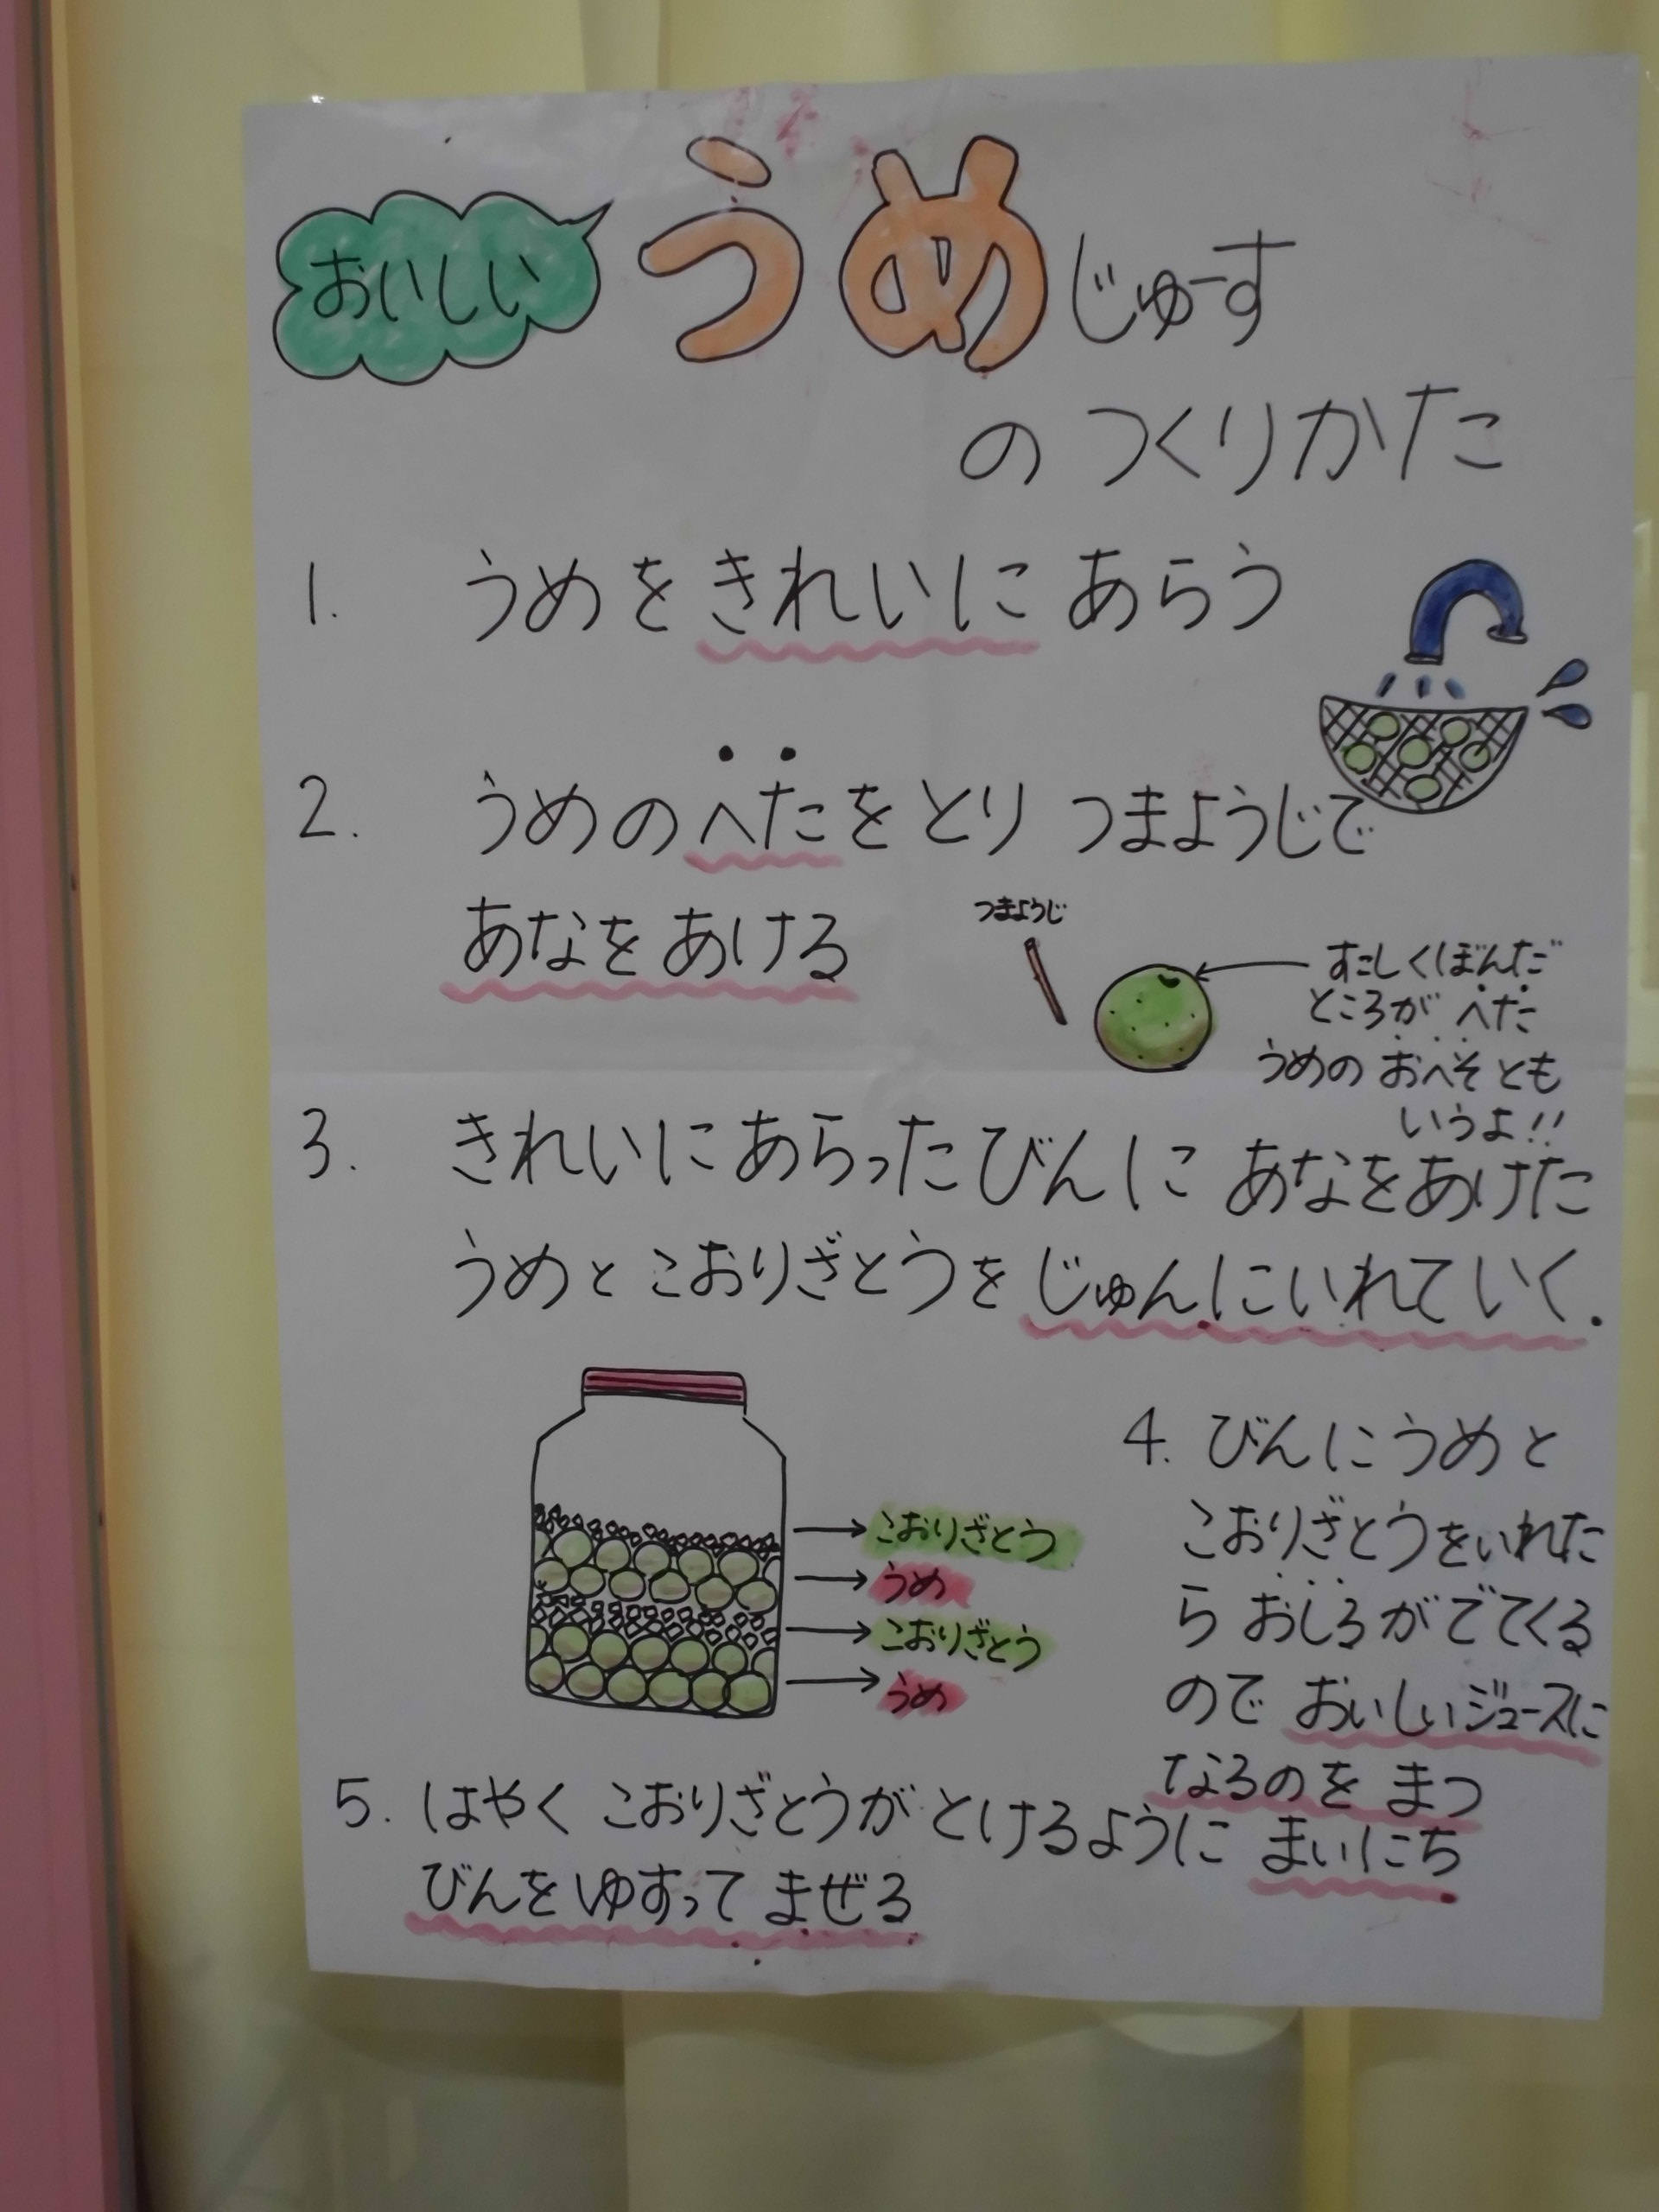 おいしい うめじゅーす
の つくりかた
1. うめをきれいに あらう
2. うめのへたをとり つまようじで
あなを あける
つまようじ
すこしくぼんだ
ところが へた
うめの おへそとも
いうよ!!
3. きれいにあらったびんに あなをあけた
うめと こおりざとうを じゅんにいれていく.
こおりざとう
うめ
こおりざとう
うめ
4. びんにうめと
こおりざとうをいれた
ら おしるがでてくる
ので おいしいジュースに
なるのを まつ
5. はやく こおりざとうが とけるように まいにち
びんを ゆすって まぜる